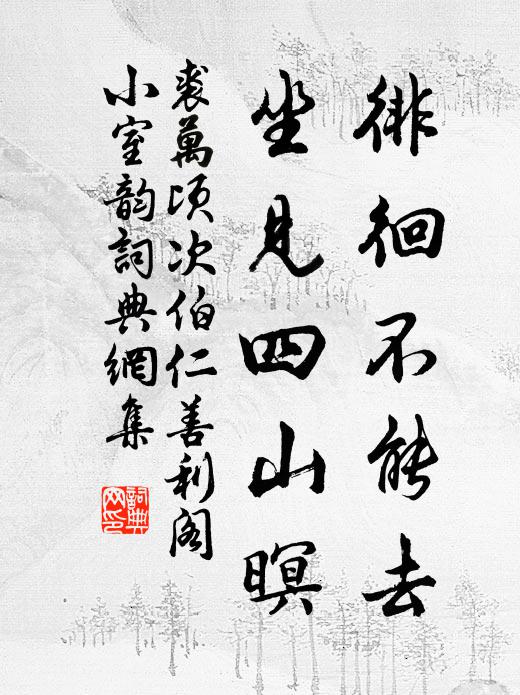 徘徊不能去
坐見四山暝
裘萬頃次伯仁善利阁
小室韵詞典網集
詞典
网印